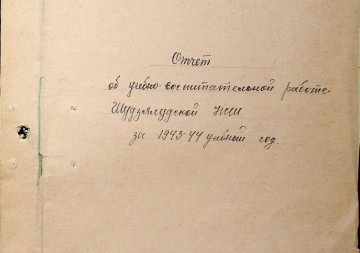 Отчет
об учебно-воспитательной работе
Шудзялудской НСШ
за 1943-44 учебный год.